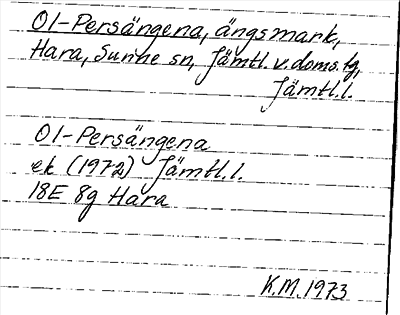 Ol-Persängena, ängsmark,
Hara, Sunne sn, Jämtl. v. doms. tg,
Jämtl. l.
Ol-Persängena
ek (1972) Jämtl. l.
18E 8g Hara
K.M. 1973